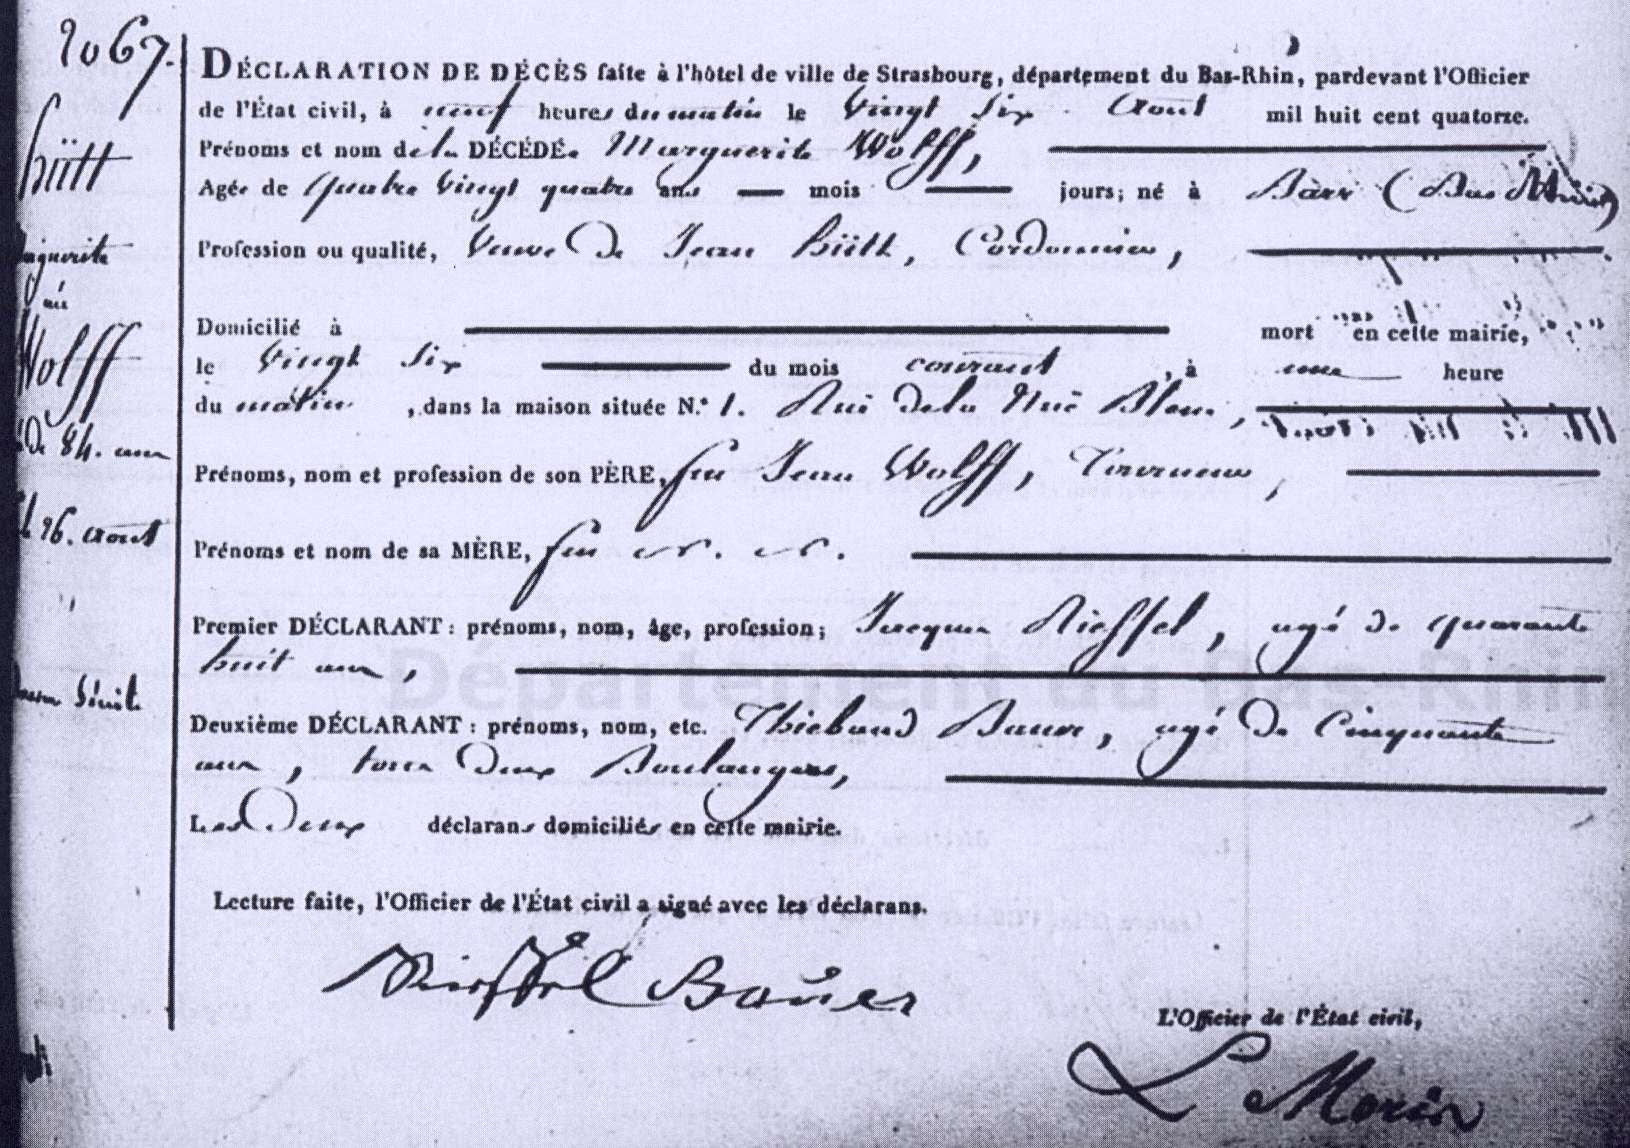 2067.
hütt
Marguerite
née
Wolff
de 84. ans
26. août
DÉCLARATION DE DÉCÈS faite à l'hôtel de ville de Strasbourg, département du Bas-Rhin, pardevant l'Officier
de l'État civil, à neuf heures du matin le vingt six Août mil huit cent quatorze.
Prénoms et nom de la DÉCÉDÉe Marguerite Wolff,
Agée de quatre vingt quatre ans — mois — jours; né à Barr (Bas Rhin)
Profession ou qualité, veuve de Jean hütt, Cordonnier,
Domicilié à mort en cette mairie,
le vingt six du mois courant, à une heure
du matin, dans la maison située N.° 1. Rue de la Nuée Bleue,
Prénoms, nom et profession de son PÈRE, feu Jean Wolff, Tourneur,
Prénoms et nom de sa MÈRE, feu N. N.
Premier DÉCLARANT : prénoms, nom, âge, profession; Jacques Rieffel, agé de quarante
huit ans,
Deuxième DÉCLARANT : prénoms, nom, etc. Thiebaud Bauer, agé de Cinquante
ans, tous deux Boulangers,
Les deux déclarans domiciliés en cette mairie.
Lecture faite, l'Officier de l'État civil a signé avec les déclarans.
Rieffel Bauer
L'Officier de l'État civil,
Département du Bas-Rhin